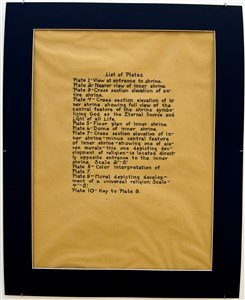 List of Plates
Plate 1-View at entrance to shrine.
Plate 2-Nearer view of inner shrine.
Plate 3-Cross section elevation of en-
tire shrine.
Plate 4-Cross section elevation of in-
ner shrine showing full view of the
central feature of the shrine symbo-
lizing God as the Eternal Source and
Light of all Life.
Plate 5-Floor plan of inner shrine.
Plate 6-Dome of inner shrine.
Plate 7-Cross section elevation of in-
ner shrine-minus central feature
of inner shrine-showing one of six-
ven murals-this one depicting dev-
elopment of religion-is located direct-
ly opposite entrance to the inner
shrine. Scale
Plate 8-Color interpretation of
Plate 7.
Plate 9-Mural depicting develop-
ment of a universal religion Scale-
Plate 10-Key to Plate 9.